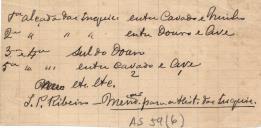 1ª alçada das Inquir. entre Cavado e Minho
2ª " " " entre Douro e Ave
3ª e 4ª Sul do Douro
5ª " " entre Cavado e Ave
etc. etc.
J. P. Ribeiro - Mem. para a Hist. das Inquir.
AS 59 (6)